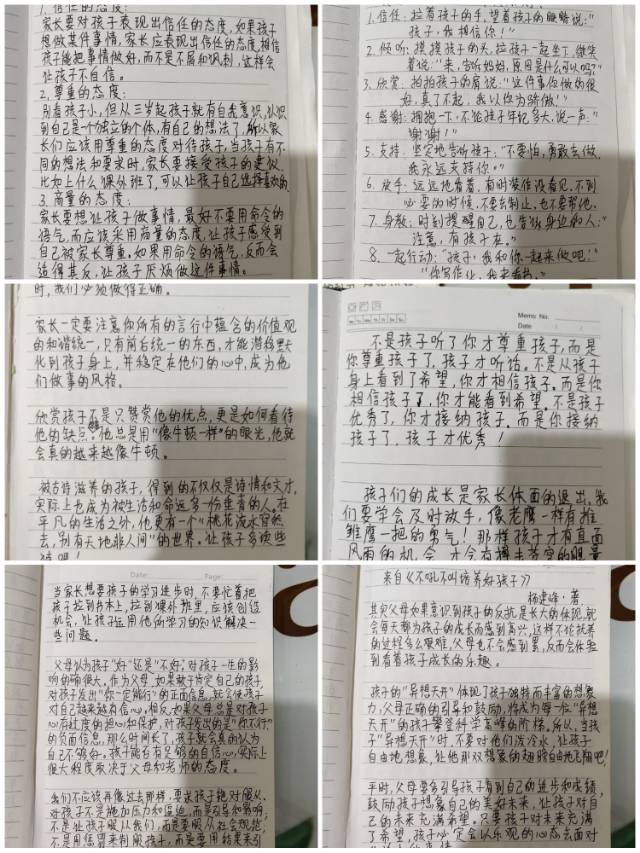 1. 信任的态度:
家长要对孩子表现出信任的态度,如果孩子
想做某件事情,家长应表现出信任的态度,相信
孩子能把事情做好,而不是不屑和讽刺,这样会
让孩子不自信。
2. 尊重的态度:
别看孩子小,但从三岁起孩子就有自我意识,认识
到自己是个独立的个体,有自己的想法了,所以家
长们应该用尊重的态度对待孩子,当孩子有不
同的想法和要求时,家长要接受孩子的建议
比如上什么课外班了,可以让孩子自己选择喜欢的
3. 商量的态度:
家长要想让孩子做事情,最好不要用命令的
语气,而应该采用商量的态度,让孩子感受到
自己被家长尊重。如果用命令的语气,反而会
适得其反,让孩子厌烦做这件事情。
1. 信任:拉着孩子的手,望着孩子的眼睛说:“
孩子,我相信你!”
2. 倾听:摸摸孩子的头,拉孩子一起坐下,微笑
着说:“来,告诉妈妈,原因是什么可以吗?”
3. 欣赏:拍拍孩子的肩说:“这件事你做的很
好,真了不起,我以你为骄傲!”
4. 感谢:拥抱一下,不论孩子年纪多大,说一声:“
谢谢!”
5. 支持:坚定地告诉孩子:“不要怕,勇敢去做,
我永远支持你。”
6. 放手:远远地看着,有时装作没看见,不到
必要的时候,不要去制止,也不要帮他。
7. 身教:时刻提醒自己,也告诉身边的人:“
注意,有孩子在。”
8. 一起行动:“孩子,我和你一起来做吧!”
“你写作业,我来看书。”
时,我们必须做得正确。
家长一定要注意你所有的言行中蕴含的价值观
的和谐统一,只有前后统一的东西,才能潜移默
化到孩子身上,并稳定在他们的心中,成为他
们做事的风格。
欣赏孩子不是只赞赏他的优点,更是如何看待
他的缺点。他总是用“像牛顿一样”的眼光,他就
会真的越来越像牛顿。
被古诗滋养的孩子,得到的不仅仅是诗情和文才,
实际上也成为被生活和命运多一份垂青的人。在
平凡的生活之外,他更有一个“桃花流水窅然
去,别有天地非人间”的世界。让孩子多读些
诗吧!
Memo No.
Date
不是孩子听了你才尊重孩子,而是
你尊重孩子了,孩子才听话。不是从孩子
身上看到了希望,你才相信孩子。而是你
相信孩子了,你才能看到希望。不是孩子
优秀了,你才接纳孩子。而是你接纳
孩子了,孩子才优秀!
孩子们的成长是家长体面的退出,我
们要学会及时放手,像老鹰一样有推
雏鹰一把的勇气!那样孩子才有直面
风雨的机会,才会有搏击苍穹的
Date: Page:
当家长想要孩子的学习进步时,不要忙着把
孩子拉到书本上,拉到课外班里,应该创设
机会,让孩子运用他所的学习的知识解决一
些问题。
父母认为孩子“好”还是“不好”,对孩子一生的影
响的确很大。作为父母,如果敢于肯定自己的孩子,
对孩子发出“你一定能行”的正面信息,就会使孩子
对自己越来越有信心,相反,如果父母总是对孩子
心存过度的担心和保护,对孩子发出的是“你不行”
的负面信息,那么时间长了,孩子就会真的认为
自己不够好。孩子能否有足够的自信心,实际上
很大程度取决于父母和老师的态度。
我们不应该再像过去那样,要求孩子绝对服从,
对孩子不是施加压力和逼迫,而是引导和影响;
不是让孩子服从我们,而是要服从社会规范;
不是用惩罚来制服孩子,而是要用结果来引
Page:
来自《不吼不叫培养好孩子》
杨建峰·著
其实父母如果意识到孩子的反抗是长大的体现,就
会每天都为孩子的成长而感到高兴,这样不论抚养
的过程多么艰难,父母也不会感到累,反而会体验
到看着孩子成长的乐趣。
孩子的“异想天开”体现了孩子独特而丰富的想象
力,父母正确的引导和鼓励,将成为每一位“异想
天开”的孩子攀登科学高峰的阶梯。所以,当孩
子“异想天开”时,不要对他们泼冷水,让孩子
自由地想象,让他那双想象的翅膀自由地飞翔吧!
平时,父母要多引导孩子看到自己的进步和成绩,
鼓励孩子想象自己的美好未来,让孩子对自
己的未来充满希望。只要孩子对未来充满
了希望,孩子必定会以乐观的心态去面对